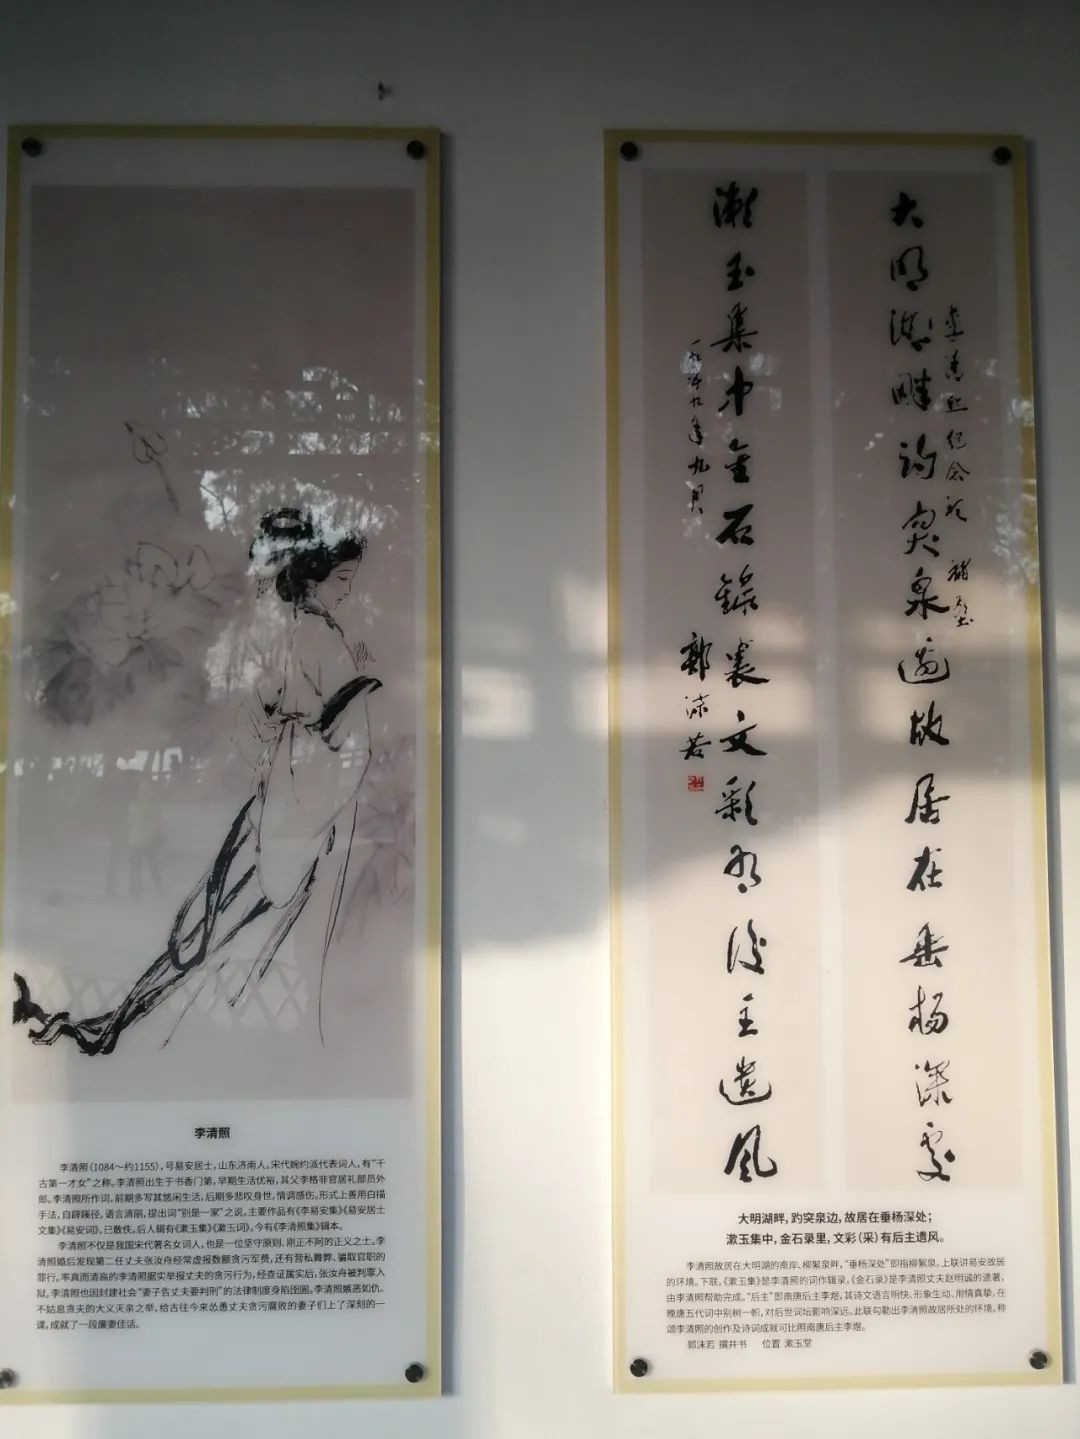 李清照
李清照（1084～约1155），号易安居士，山东济南人，宋代婉约派代表词人，有“千
古第一才女”之称。李清照出生于书香门第，早期生活优裕，其父李格非官居礼部员外
郎。李清照所作词，前期多写其悠闲生活，后期多悲叹身世，情调感伤。形式上善用白描
手法，自辟蹊径，语言清丽，提出词“别是一家”之说。主要作品有《李易安集》《易安居士
文集》《易安词》，已散佚。后人辑有《漱玉集》《漱玉词》。今有《李清照集》辑本。
李清照不仅是我国宋代著名女词人，也是一位坚守原则、刚正不阿的正义之士。李
清照婚后发现第二任丈夫张汝舟经常虚报数额贪污军费，还有营私舞弊、骗取官职的
罪行。率真而清高的李清照据实举报丈夫的贪污行为，经查证属实后，张汝舟被判罪入
狱，李清照也因封建社会“妻子告丈夫要判刑”的法律制度身陷囹圄。李清照嫉恶如仇、
不姑息贪夫的大义灭亲之举，给古往今来怂恿丈夫贪污腐败的妻子们上了深刻的一
课，成就了一段廉妻佳话。
大明湖畔趵突泉边故居在垂杨深处
李清照纪念
漱玉集中金石录里文彩有后主遗风
一九五九年九月
郭沫若
大明湖畔，趵突泉边，故居在垂杨深处；
漱玉集中，金石录里，文彩（采）有后主遗风。
李清照故居在大明湖的南岸、柳絮泉畔，“垂杨深处”即指柳絮泉，上联讲易安故居
的环境。下联，《漱玉集》是李清照的词作辑录，《金石录》是李清照丈夫赵明诚的遗著，
由李清照帮助完成。“后主”即南唐后主李煜，其诗文语言明快、形象生动、用情真挚，在
晚唐五代词中别树一帜，对后世词坛影响深远。此联勾勒出李清照故居所处的环境，称
颂李清照的创作及诗词成就可比照南唐后主李煜。
郭沫若 撰并书 位置 漱玉堂